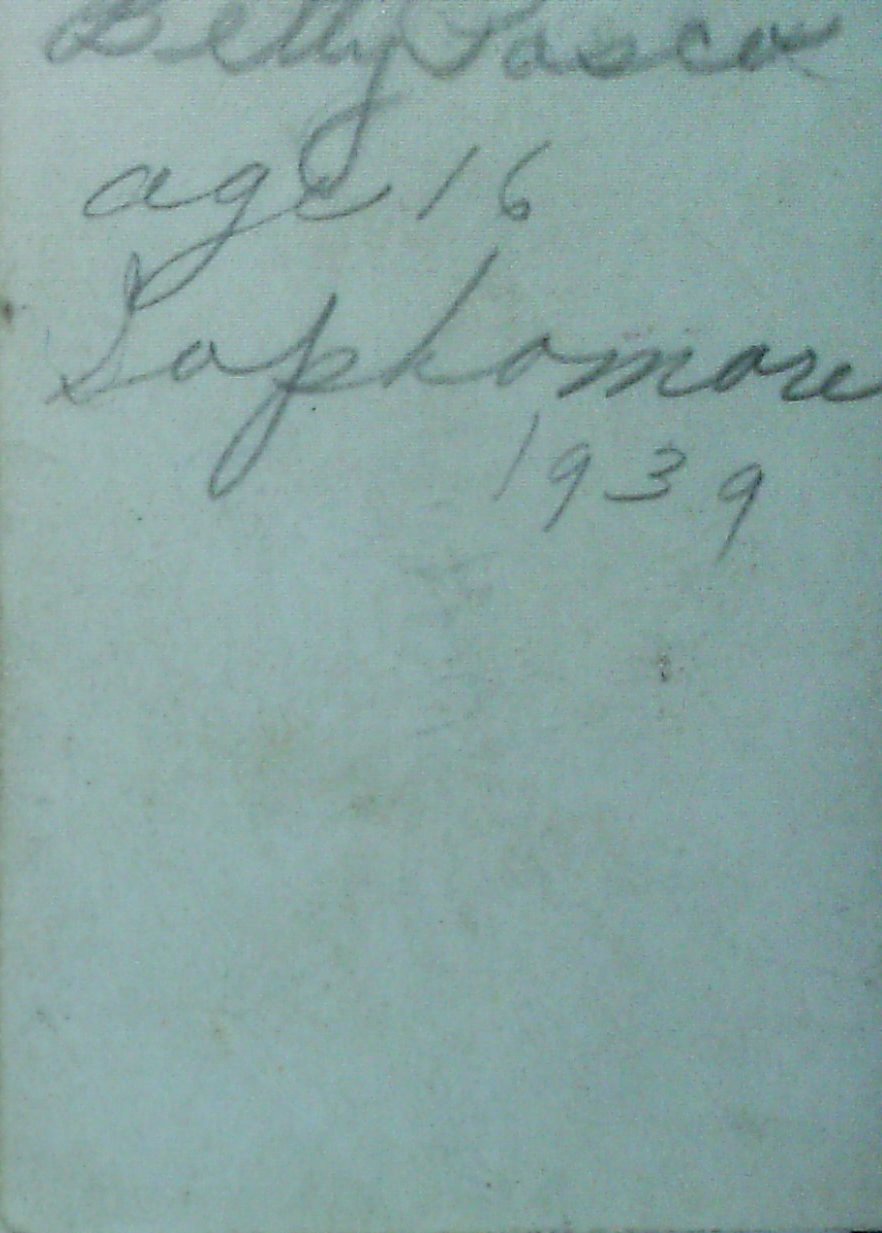 Betty Pasco
age 16
Sophomore
1939